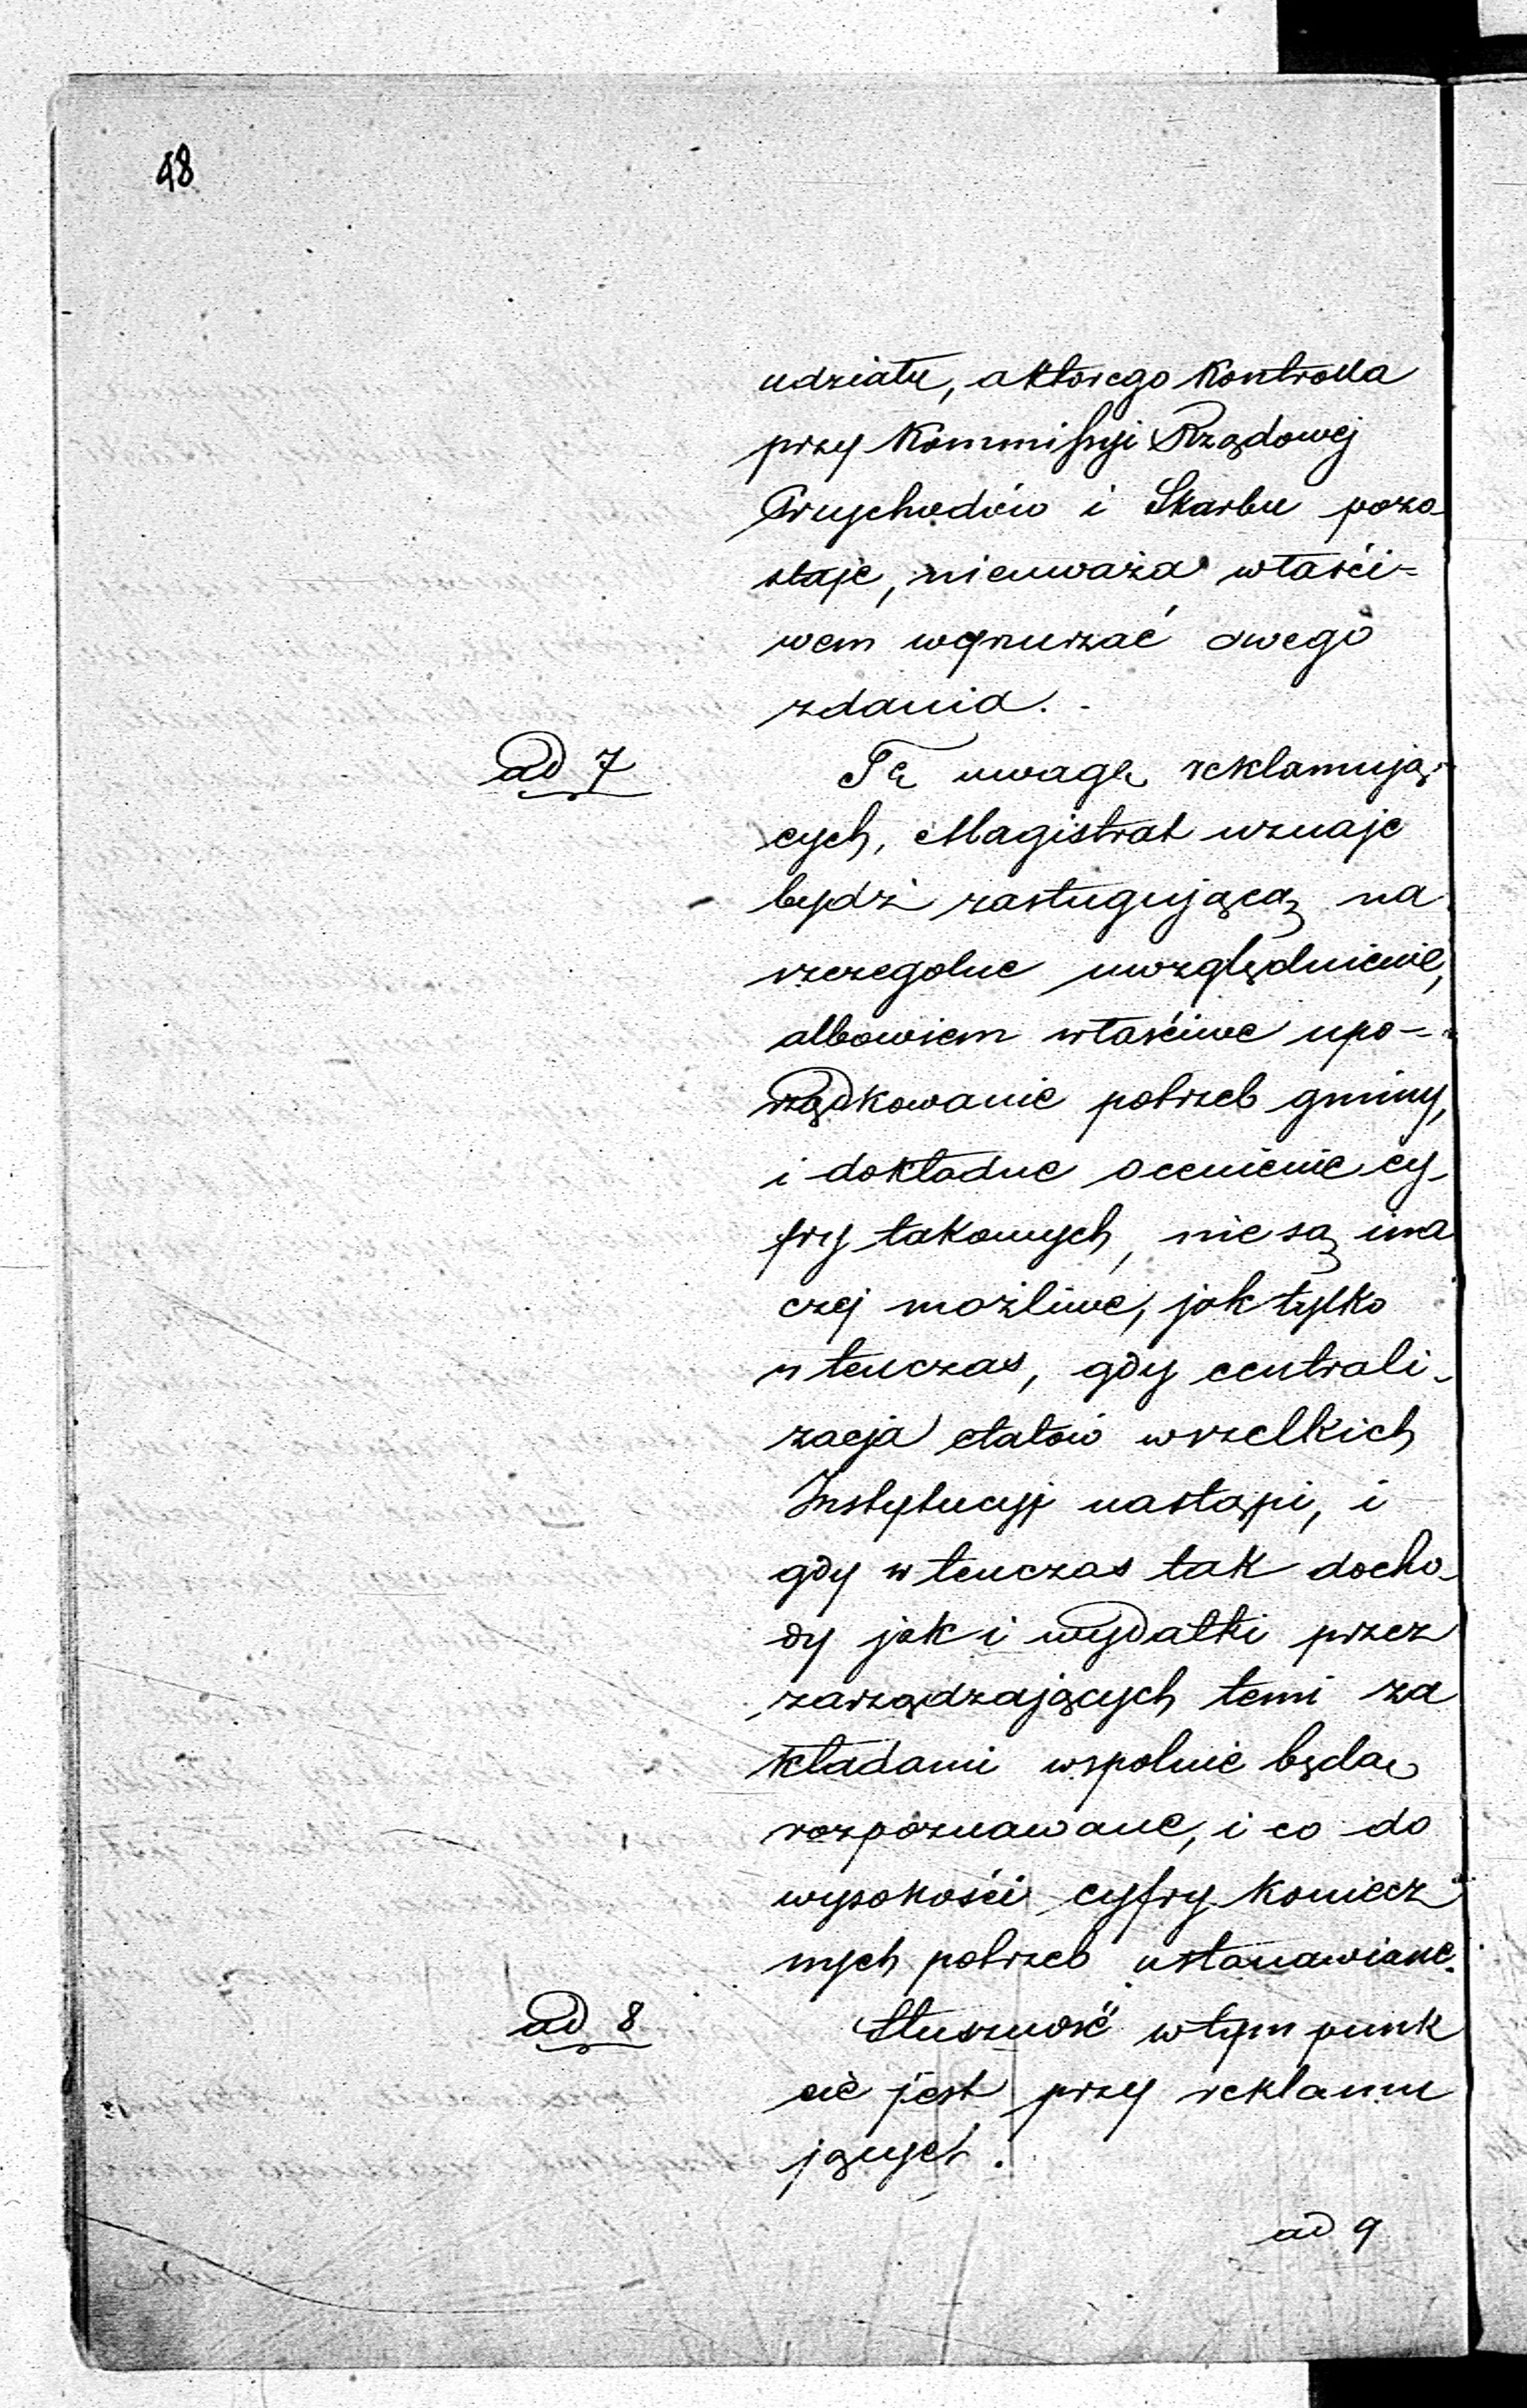 48
udziału, a którego Kontrolla
przy Kommissyi Rządowej
Przychodów i Skarbu pozo
staje, nieuważa właści=
wem wynurzać swego
zdania.
ad 7
Tę uwagę reklamują-
cych, Magistrat uznaje
bydź zasługującą na
szczegolne uwzględnienie,
albowiem właściwe upo-
rządkowanie potrzeb gminy,
i dokładne ocenienie cy-
fry takowych, nie są ina
czej możliwe, jak tylko
w tenczas, gdy centrali-
zacja etatów wszelkich
Instytucyj nastąpi, i
gdy w tenczas tak docho-
dy jak i wydatki przez
zarządzających temi za
kładami wspolnie będą
rozpoznawane, i co do
wysokości cyfry koniecz
nych potrzeb ustanawiane.
ad 8
Słuszność w tym punk
cie jest przy reklamu
jących.
ad 9